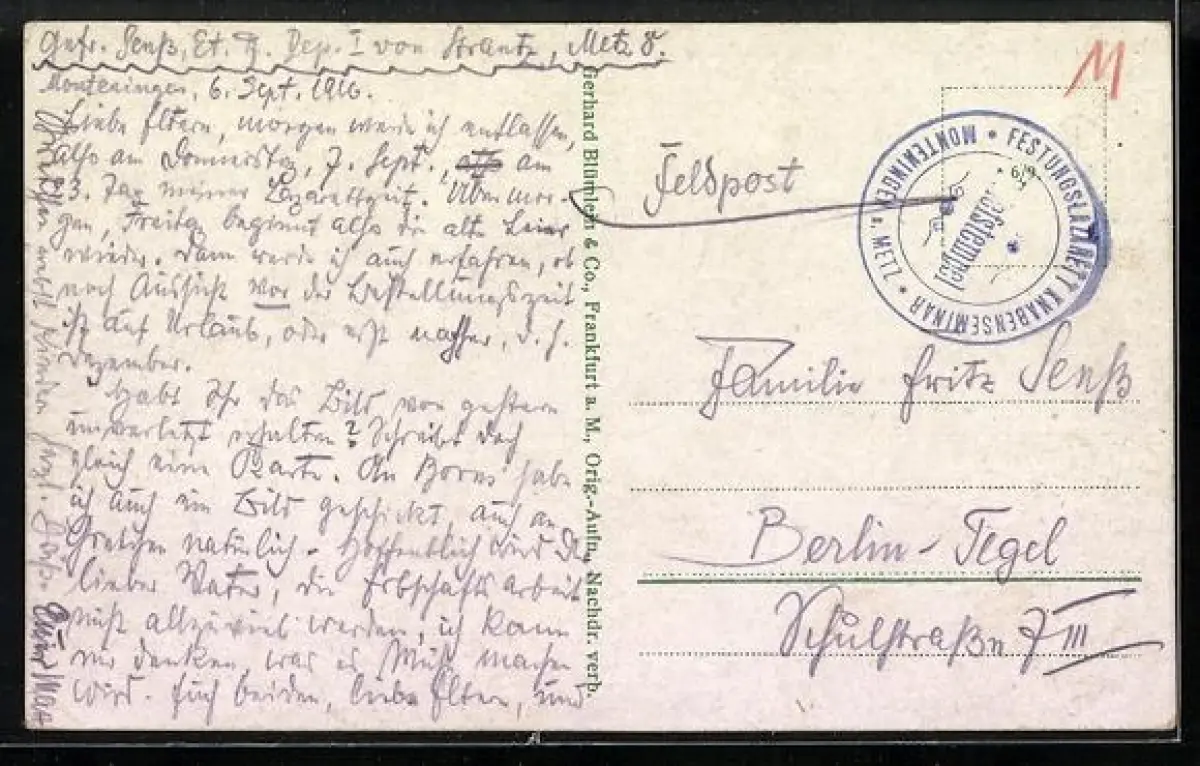 Gefr. Senß, Et. F. Dep. I von Strantz, Metz 8.
Monteningen, 6. Sept. 1916.
Liebe Eltern, morgen werde ich entlassen,
also am Donnerstag, 7. Sept., also am
23. Tag meiner Lazarettzeit. Übermor-
gen, Freitag beginnt also die alte Leier
wieder. Dann werde ich auch erfahren, ob
noch Aussicht vor der Bestellungszeit
ist auf Urlaub, oder erst nachher, d. h.
Dezember.
Habt Ihr das Bild von gestern
unverletzt erhalten? Schreibt doch
gleich eine Karte. An Borns habe
ich auch ein Bild geschickt, auch an
Gretchen natürlich. Hoffentlich wird Dir
lieber Vater, die Erbschaftsarbeit
nicht allzuviel werden, ich kann
mir denken was es Mühe machen
wird. Euch beiden, liebe Eltern, und
nebst Kindern herzl. Grüße Euer Max
Gerhard Blümlein & Co., Frankfurt a. M., Orig.-Aufn. Nachdr. verb.
M
Feldpost
FESTUNGSLAZARETT KNABENSEMINAR * MONTENINGEN b. METZ *
6/9
Familie Fritz Senß
Berlin-Tegel
Schulstraße 7 III